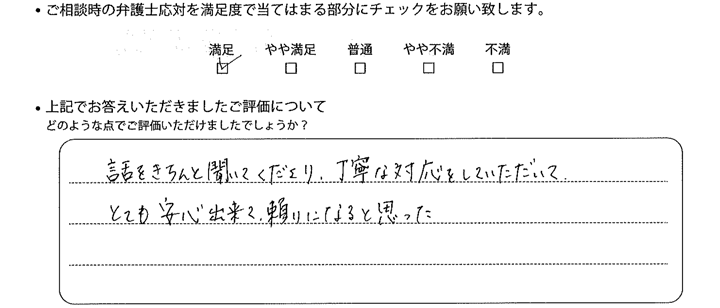 • ご相談時の弁護士応対を満足度で当てはまる部分にチェックをお願い致します。
満足 やや満足 普通 やや不満 不満
☑ □ □ □ □
• 上記でお答えいただきましたご評価について
どのような点でご評価いただけましたでしょうか？
話をきちんと聞いてくださり、丁寧な対応をしていただいて、
とても安心出来て、頼りになると思った